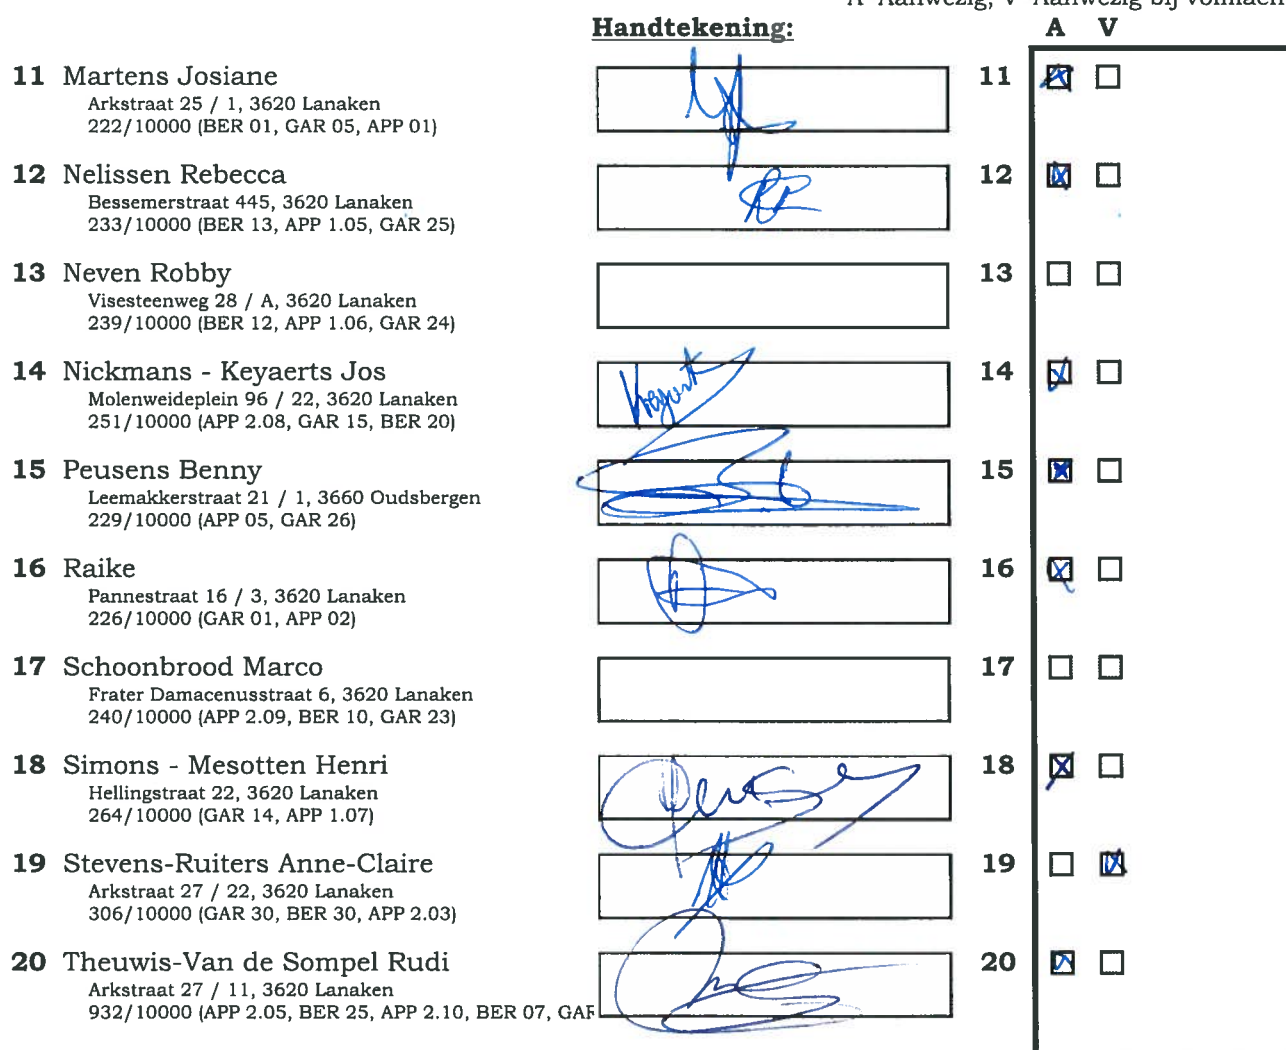 A=Aanwezig, V=Aanwezig bij volmach
Handtekening:
A V
11 Martens Josiane 11
Arkstraat 25 / 1, 3620 Lanaken
222/10000 (BER 01, GAR 05, APP 01)
12 Nelissen Rebecca 12
Bessemerstraat 445, 3620 Lanaken
233/10000 (BER 13, APP 1.05, GAR 25)
13 Neven Robby 13
Visesteenweg 28 / A, 3620 Lanaken
239/10000 (BER 12, APP 1.06, GAR 24)
14 Nickmans - Keyaerts Jos 14
Molenweideplein 96 / 22, 3620 Lanaken
251/10000 (APP 2.08, GAR 15, BER 20)
15 Peusens Benny 15
Leemakkerstraat 21 / 1, 3660 Oudsbergen
229/10000 (APP 05, GAR 26)
16 Raike 16
Pannestraat 16 / 3, 3620 Lanaken
226/10000 (GAR 01, APP 02)
17 Schoonbrood Marco 17
Frater Damacenusstraat 6, 3620 Lanaken
240/10000 (APP 2.09, BER 10, GAR 23)
18 Simons - Mesotten Henri 18
Hellingstraat 22, 3620 Lanaken
264/10000 (GAR 14, APP 1.07)
19 Stevens-Ruiters Anne-Claire 19
Arkstraat 27 / 22, 3620 Lanaken
306/10000 (GAR 30, BER 30, APP 2.03)
20 Theuwis-Van de Sompel Rudi 20
Arkstraat 27 / 11, 3620 Lanaken
932/10000 (APP 2.05, BER 25, APP 2.10, BER 07, GAR